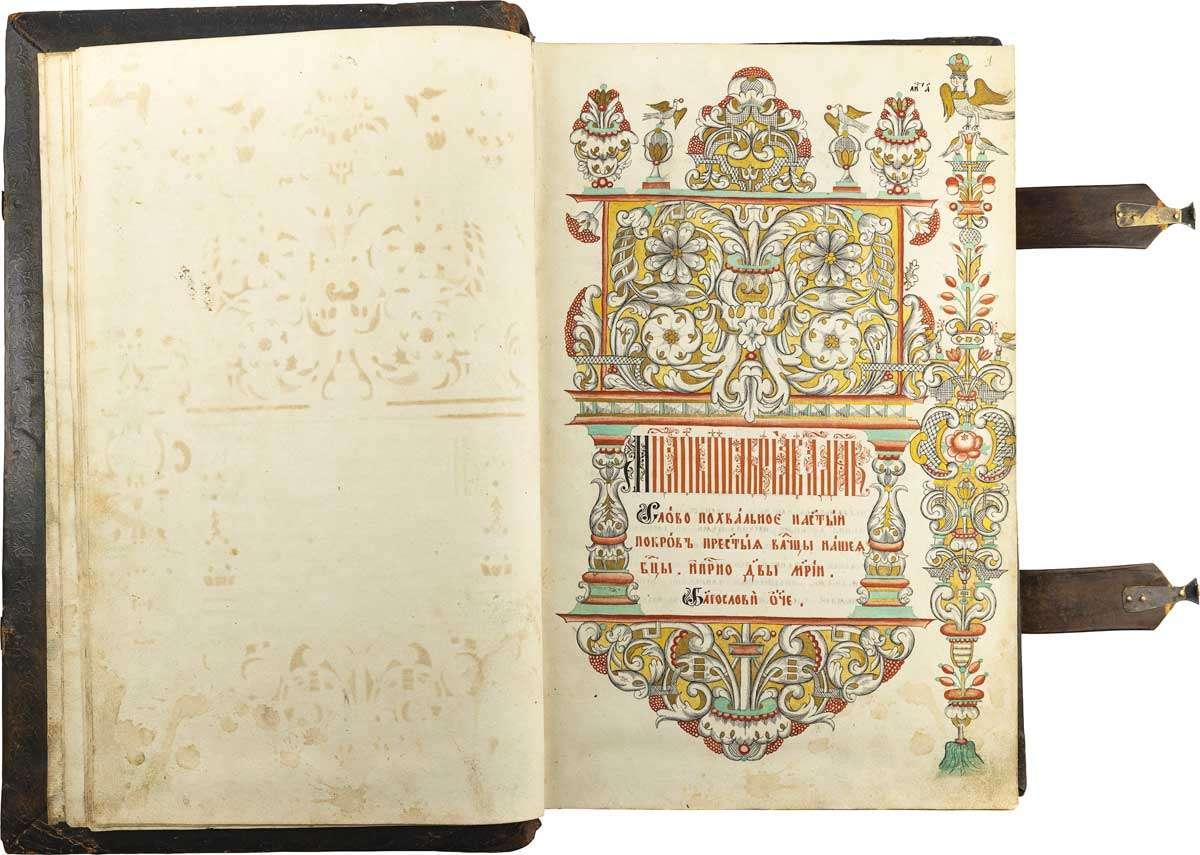 Сло́во похва́льное на ст҃ы́й
покро́въ прест҃ы́ѧ влⷣчцы на́шеѧ
бц҃ы. и҆ прⷭ҇но дв҃ы мр҃і́и.
Бл҃гословѝ ѻ҆́ч҃е.